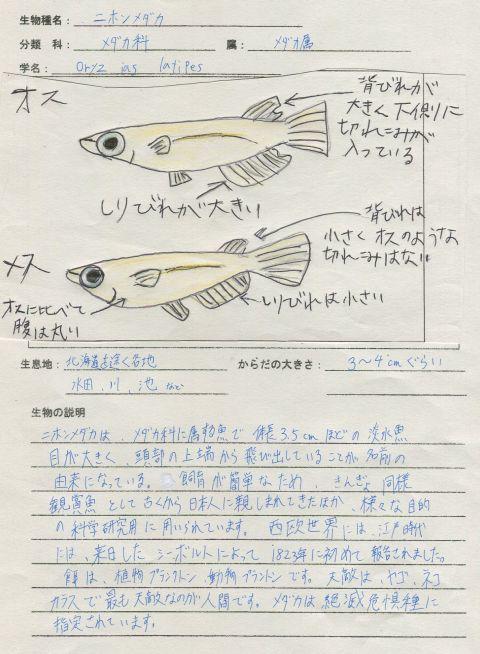 生物種名： ニホンメダカ
分類 科： メダカ科 属： メダカ属
学名： Oryz ias latipes
オス
背びれが
大きく下側に
切れこみが
入っている
しりびれが大きい
背びれは
小さく オスのような
切れこみはない
メス
オスに比べて
腹は丸い
しりびれは小さい
生息地： 北海道を除く各地 からだの大きさ： 3〜4cmぐらい
水田、川、池 など
生物の説明
ニホンメダカは、メダカ科に属す魚で 体長3.5cmほどの 淡水魚
目が大きく、頭部の上端から 飛び出していることが名前の
由来になっている。 飼育が簡単なため、きんぎょ同様
観賞魚 として古くから日本人に親しまれてきたほか、様々な目的
の科学研究用に用いられています。 西欧世界には、江戸時代
には、来日した シーボルトによって 1823年に初めて報告されました。
餌は、植物プランクトン、動物プランクトンです。天敵は、ヤゴ、ネコ
カラスで最も天敵なのが人間です。メダカは絶滅危惧種に
指定されています。